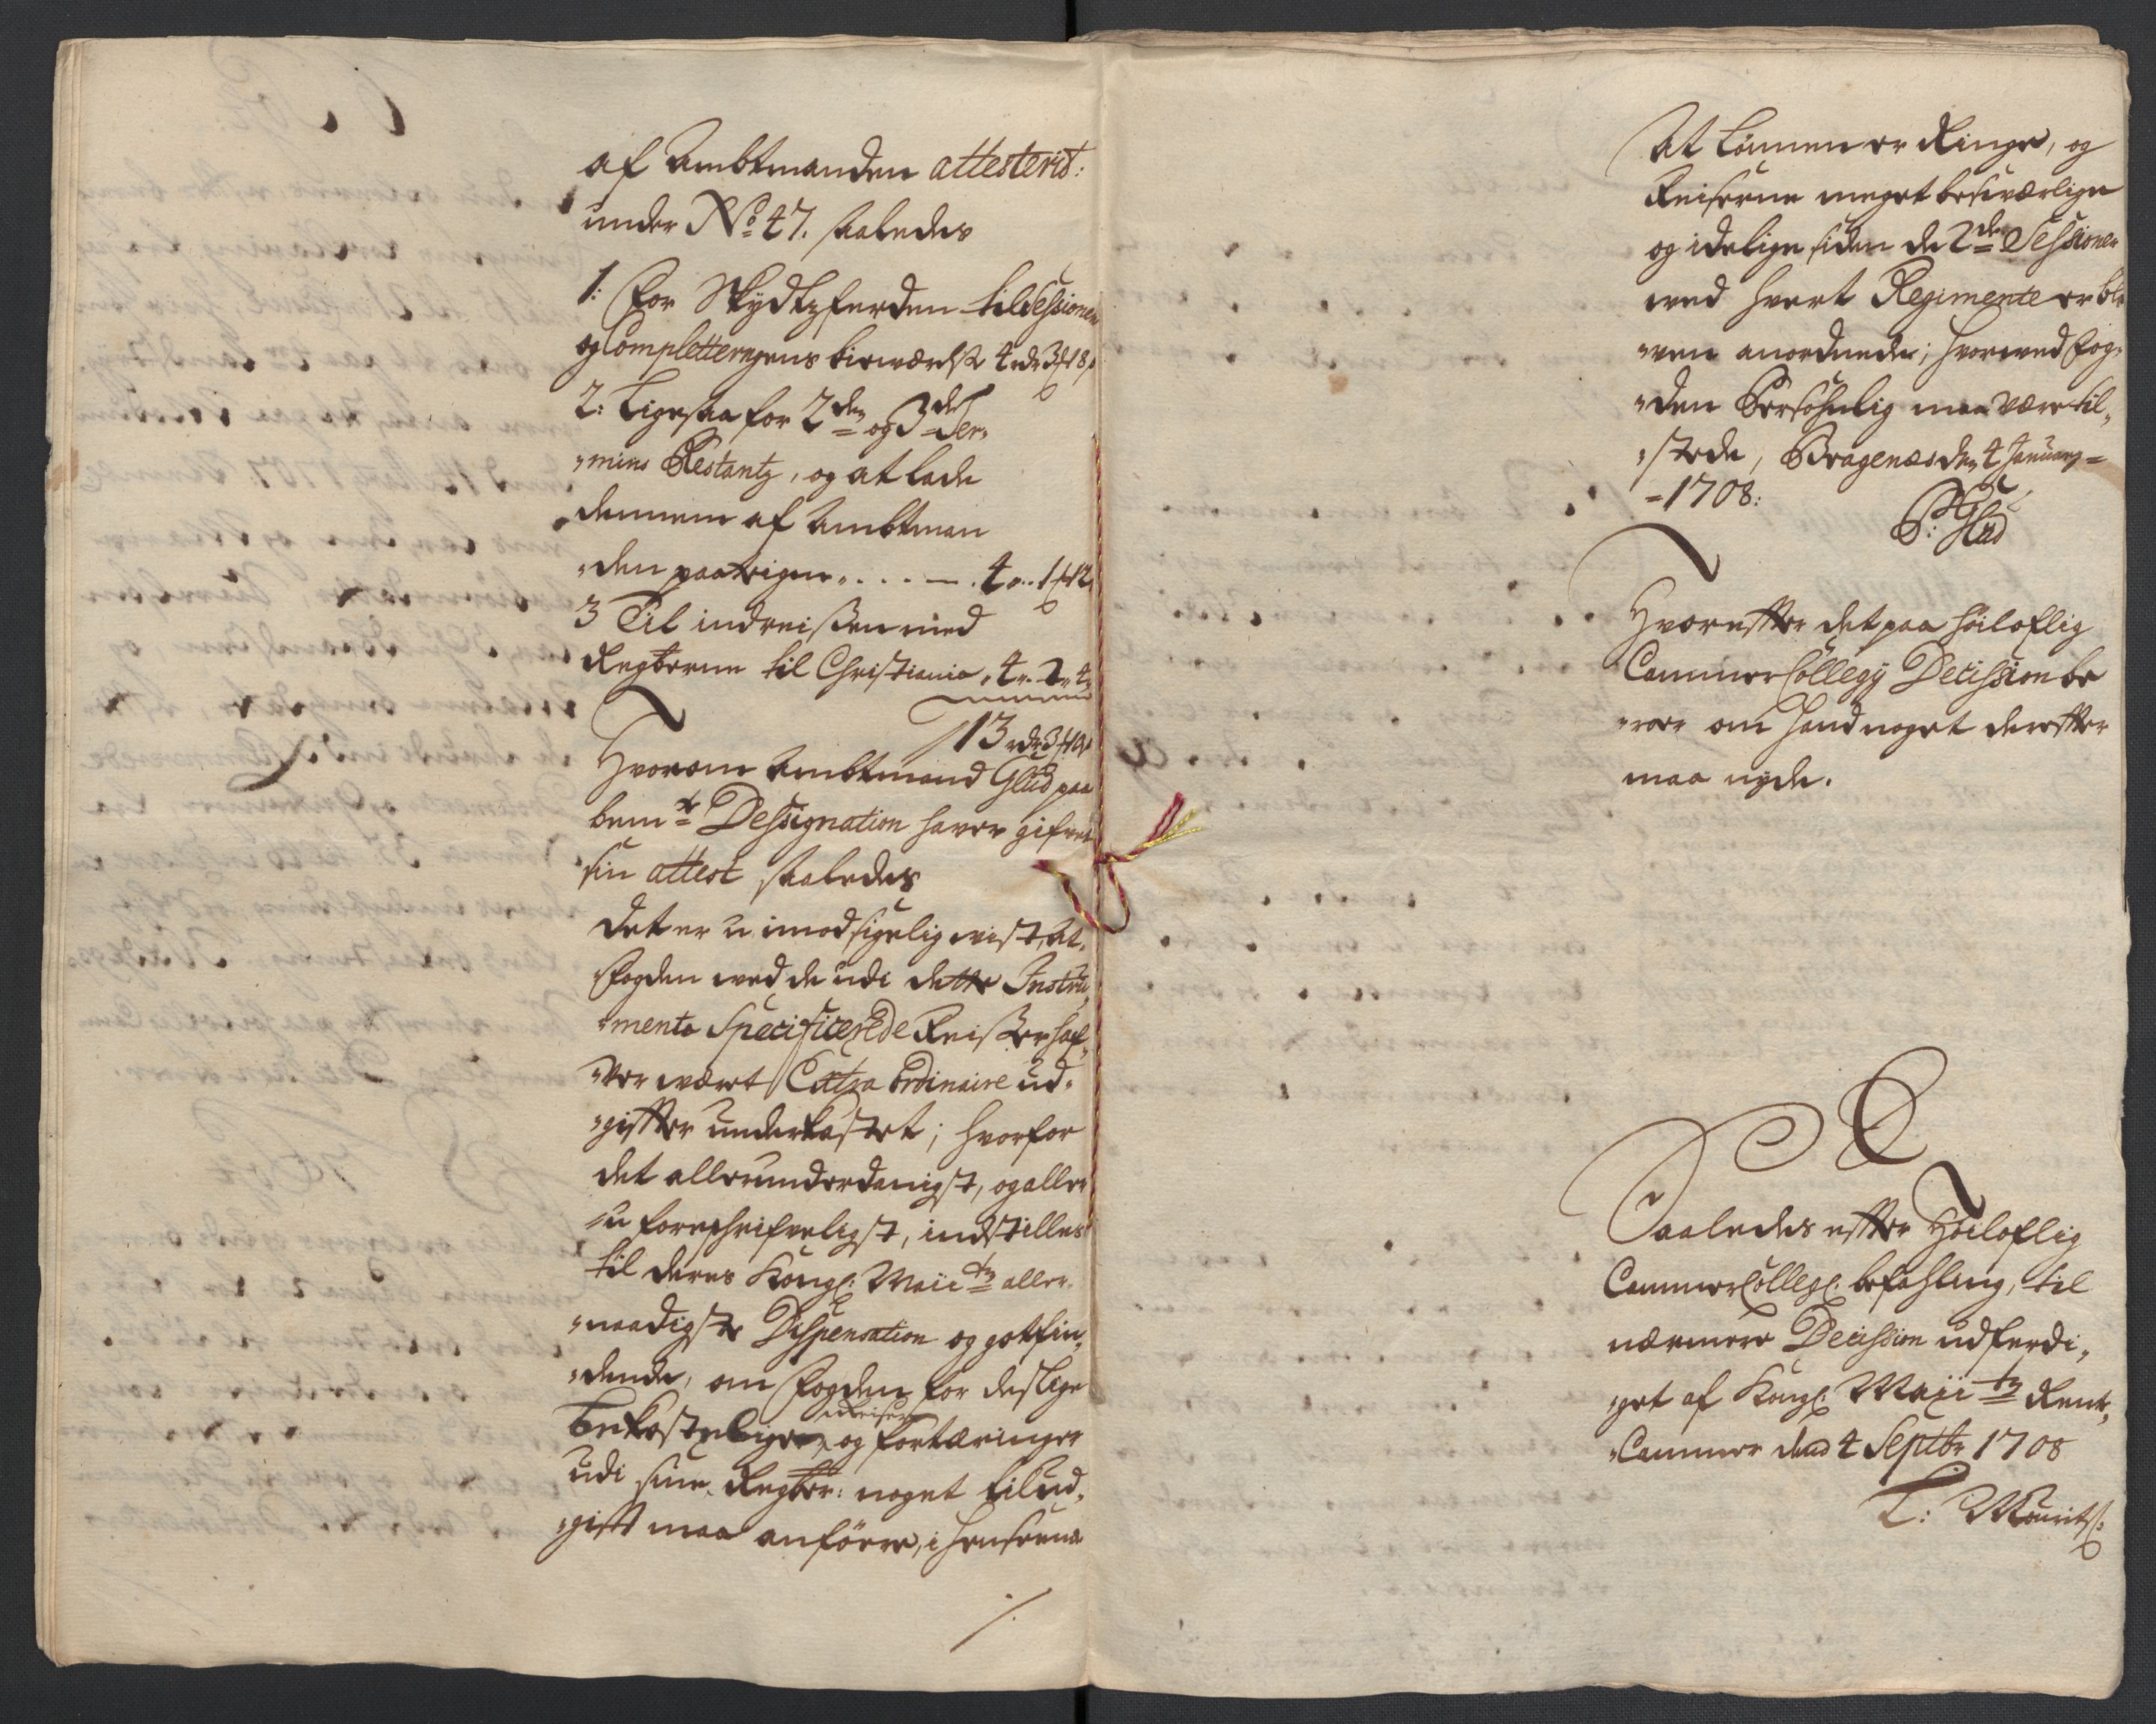 af Ambtmanden attesterit:
under No 47. saaledes
1: For Skydtzferden til Sessionen
og Completteringens biewærelse 4 rdr 3 ₰ 18 s
2: Ligesaa for 2den og 3de Ter-
-mins Restantz, og at lade
dennem af Ambtman
-den paateigne . . . — . 4 - 1 ₰ 12
3 Til indreissen med
Regterne til Christiania - 4 - 2 - 4
13 rdr 3 ₰ 10 s
Hvorom Ambtmand Glud paa
bemte Dessignation haver gifvet
sin attest saaledes
Det er u-imodsigelig vist, at
Fogden ved de udi dette Instru-
-mente Specificerede Reiser haf-
-ver været Extra Ordinaire ud-
-gifter underkastet; hvorfor
det allerunderdanigst, og aller
-u foreschrifveligst, indstilles
til deres Kongl: Maiits aller-
-naadigste Dispensation og gotfin-
-dende, om Fogden for deslige
bekostelige reiser og fortæringer
udi sine Regter: noget til ud-
-gift maa anføre, i henseende
/.
At Lønnen er Ringe, og
Reiserne meget besværlige
og idelige siden de 2de Sessioner
ved hvert Regimente er ble
-ven anordnede; hvorved Fog-
-den Persohnlig maa være til-
-stede, Bragenæs den 4 January
-1708:
P: Glud
Hvorefter det paa høiloflig
Cammer Collegij Decission be
-roer om hand noget derefter
maa nyde.
Saaledes efter Høiloflig
Cammer Colleg: befahling, til
nærmere Decission udferdi-
-get af Kongl: Maiits Rente-
-Cammer dend 4 Septbr 1708
L: Mouritz: